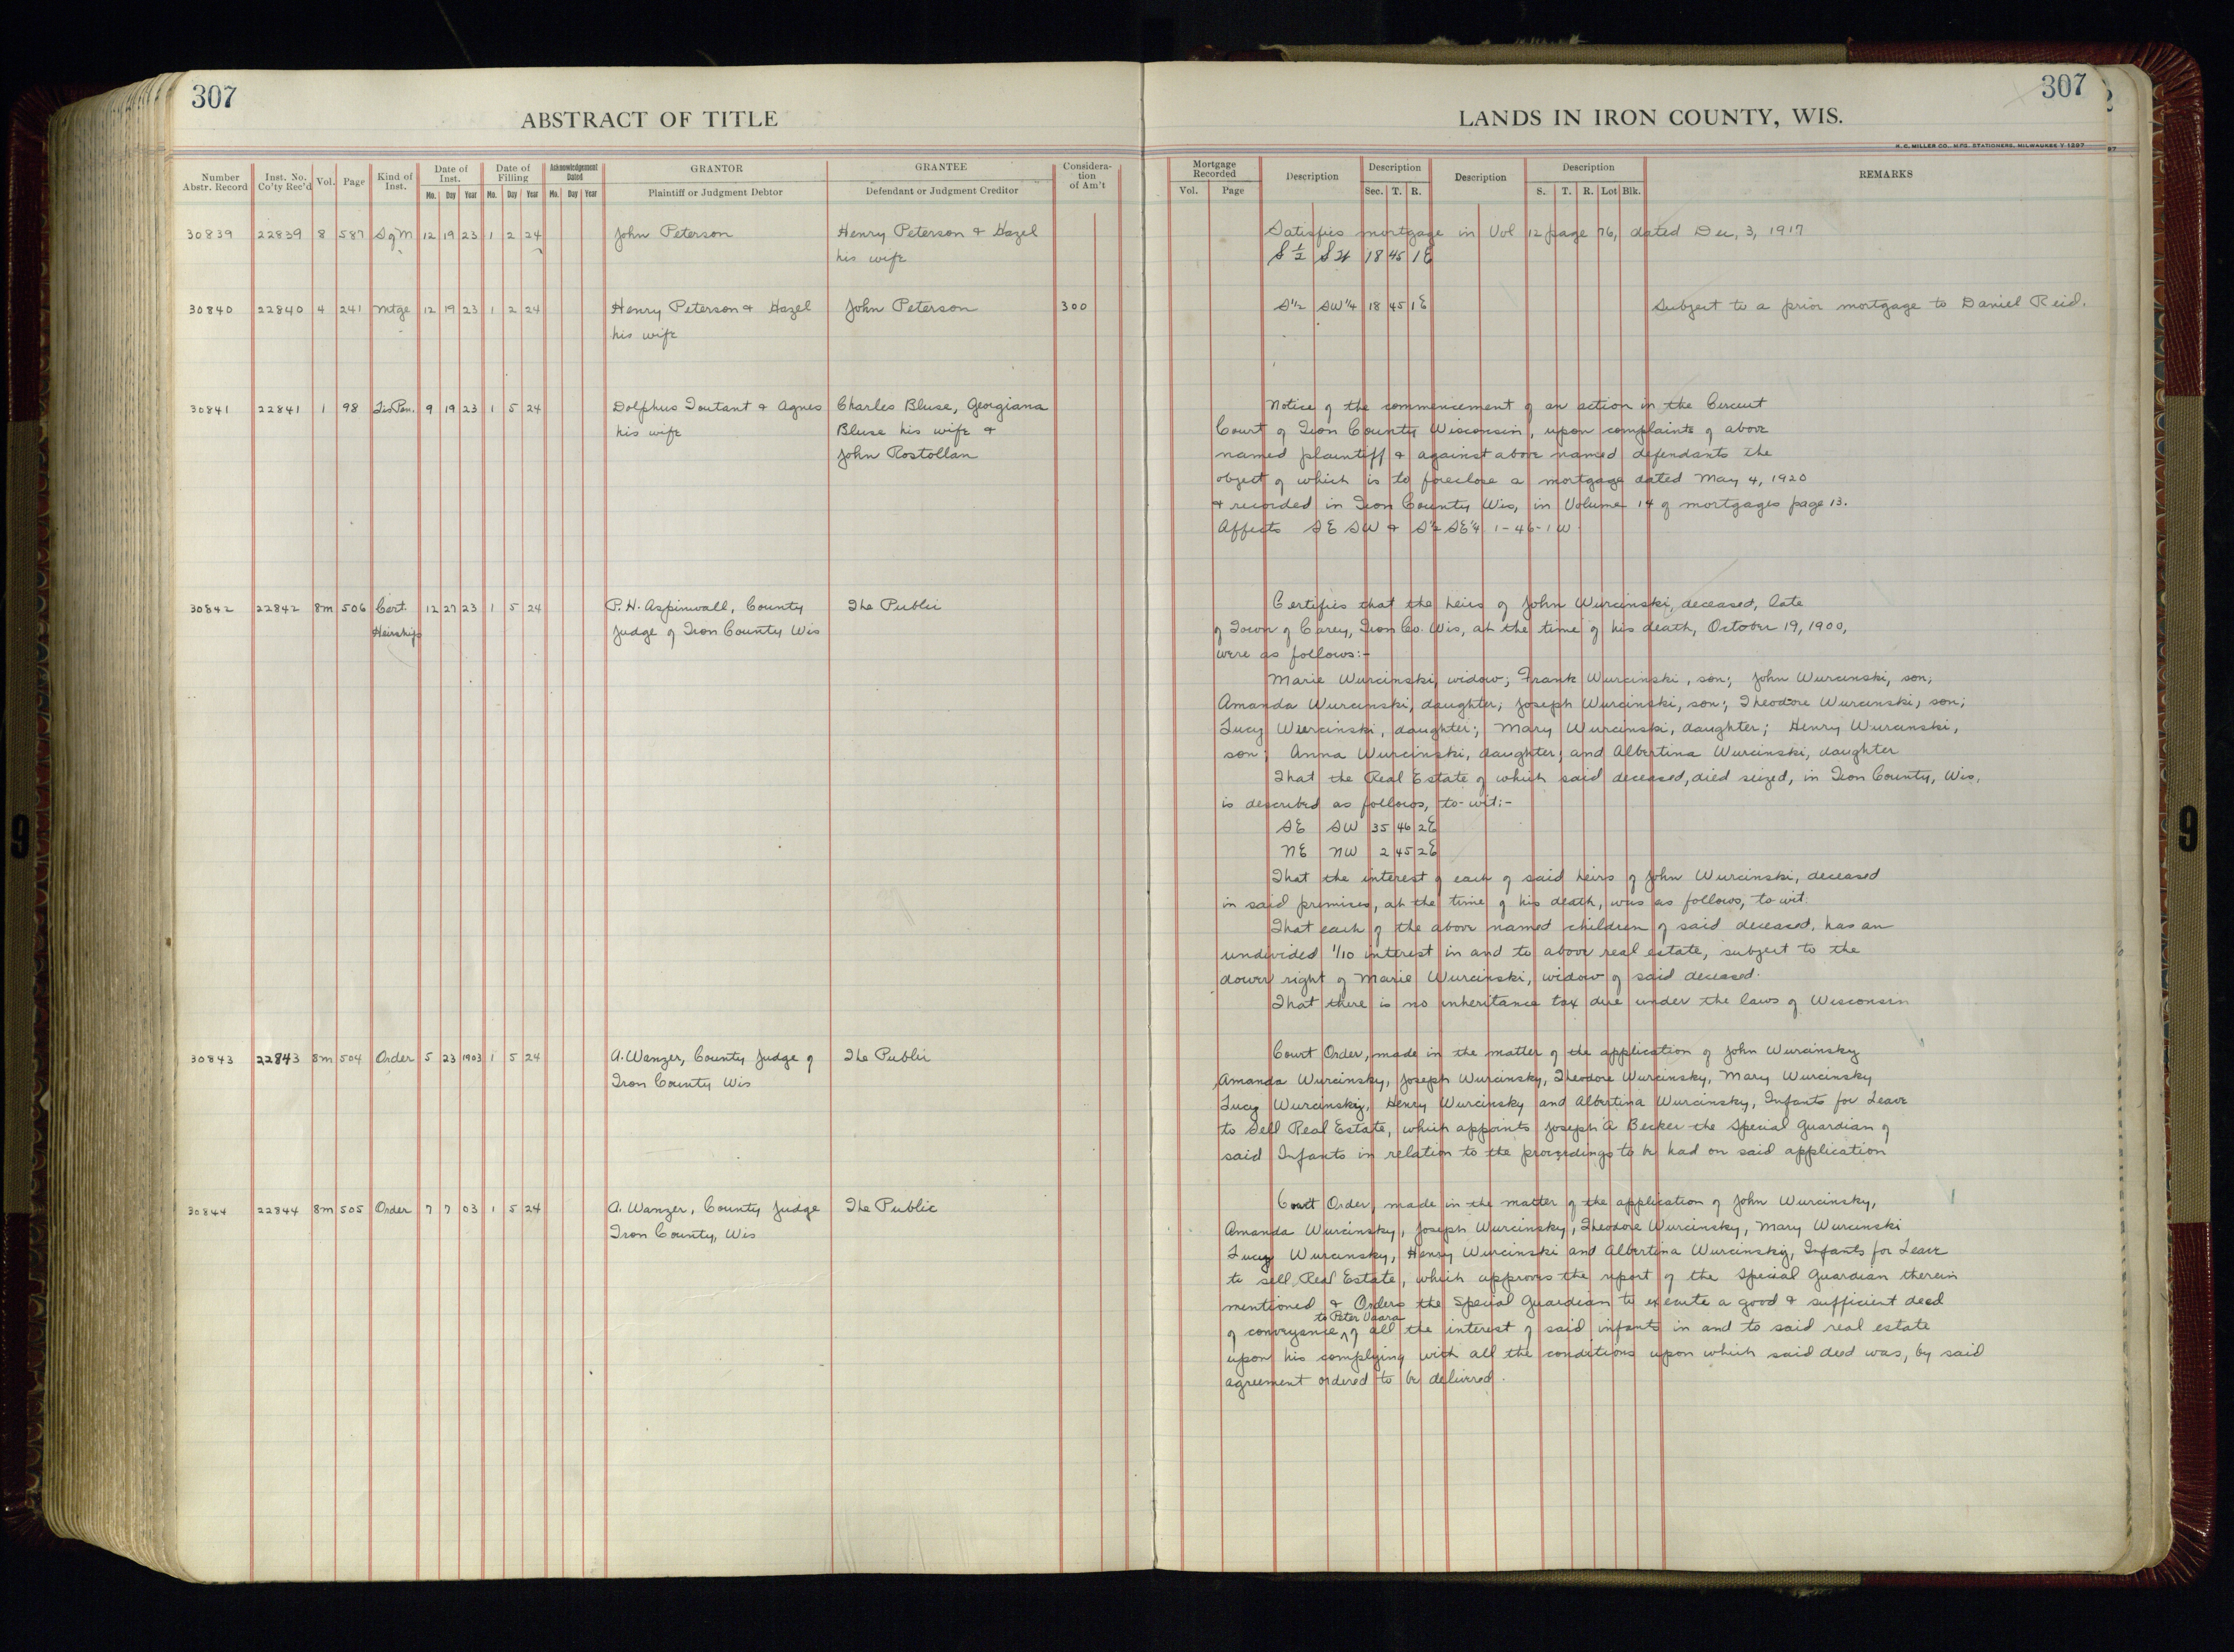 307
307
ABSTRACT OF TITLE
LANDS IN IRON COUNTY, WIS.
H. C. MILLER CO., MFG. STATIONERS, MILWAUKEE
Number Abstr. Record | Inst. No. Co'ty Rec'd | Vol. | Page | Kind of Inst. | Date of Inst. | Date of Filling | Acknowledgement Dated | GRANTOR | GRANTEE | Considera-tion of Am't | Mortgage Recorded | Description | Description | Description | Description | REMARKS
Mo. Day Year Mo. Day Year Mo. Day Year | Plaintiff or Judgment Debtor | Defendant or Judgment Creditor | Vol. Page | Sec. T. R. | S. T. R. Lot Blk.
30839 22839 8 587 S of M 12 19 23 1 2 24 John Peterson Henry Peterson & Hazel Satisfies mortgage in Vol 12 page 76, dated Dec, 3, 1917
his wife S ½ SW 18 45 1E
30840 22840 4 241 Mtge 12 19 23 1 2 24 Henry Peterson & Hazel John Peterson 300 S½ SW¼ 18 45 1E Subject to a prior mortgage to Daniel Reid.
his wife
30841 22841 1 98 Lis Pen. 9 19 23 1 5 24 Dolphus Toutant & Agnes Charles Bluse, Georgiana Notice of the commencement of an action in the Circuit
his wife Bluse his wife & Court of Iron County Wisconsin, upon complaints of above
John Rostollan named plaintiff & against above named defendants the
object of which is to foreclose a mortgage dated May 4, 1920
& recorded in Iron County Wis, in Volume 14 of mortgages page 13.
Affects SE SW & S½ SE¼ 1-46-1W
30842 22842 8m 506 Cert. 12 27 23 1 5 24 P. H. Aspinwall, County The Public Certifies that the heirs of John Wurcinski, deceased, late
Heirship Judge of Iron County Wis of Town of Carey, Iron Co. Wis, at the time of his death, October 19, 1900,
were as follows:-
Marie Wurcinski, widow; Frank Wurcinski, son; John Wurcinski, son,
Amanda Wurcinski, daughter; Joseph Wurcinski, son; Theodore Wurcinski, son;
Lucy Wurcinski, daughter; Mary Wurcinski, daughter; Henry Wurcinski,
son; Anna Wurcinski, daughter; and Albertina Wurcinski, daughter
That the Real Estate of which said deceased, died seized, in Iron County, Wis,
is described as follows, to-wit:-
SE SW 35 46 2E
NE NW 2 45 2E
That the interest of each of said heirs of John Wurcinski, deceased
in said premises, at the time of his death, was as follows, to wit.
That each of the above named children of said deceased, has an
undivided 1/10 interest in and to above real estate, subject to the
dower right of Marie Wurcinski, widow of said deceased.
That there is no inheritance tax due under the laws of Wisconsin
30843 22843 8m 504 Order 5 23 1903 1 5 24 A. Wanzer, County Judge of The Public Court Order, made in the matter of the application of John Wurcinsky
Iron County Wis Amanda Wurcinsky, Joseph Wurcinsky, Theodore Wurcinsky, Mary Wurcinsky
Lucy Wurcinsky, Henry Wurcinsky and Albertina Wurcinsky, Infants for Leave
to Sell Real Estate, which appoints Joseph A Becker the Special Guardian of
said Infants in relation to the proceedings to be had on said application
30844 22844 8m 505 Order 7 7 03 1 5 24 A. Wanzer, County Judge The Public Court Order, made in the matter of the application of John Wurcinsky,
Iron County, Wis Amanda Wurcinsky, Joseph Wurcinsky, Theodore Wurcinsky, Mary Wurcinski
Lucy Wurcinsky, Henry Wurcinski and Albertina Wurcinsky, Infants for Leave
to sell Real Estate, which approves the report of the Special Guardian therein
mentioned & Orders the Special Guardian to execute a good & sufficient deed
to Peter Vaara
of conveyance ^ of all the interest of said infants in and to said real estate
upon his complying with all the conditions upon which said deed was, by said
agreement ordered to be delivered.
9
9